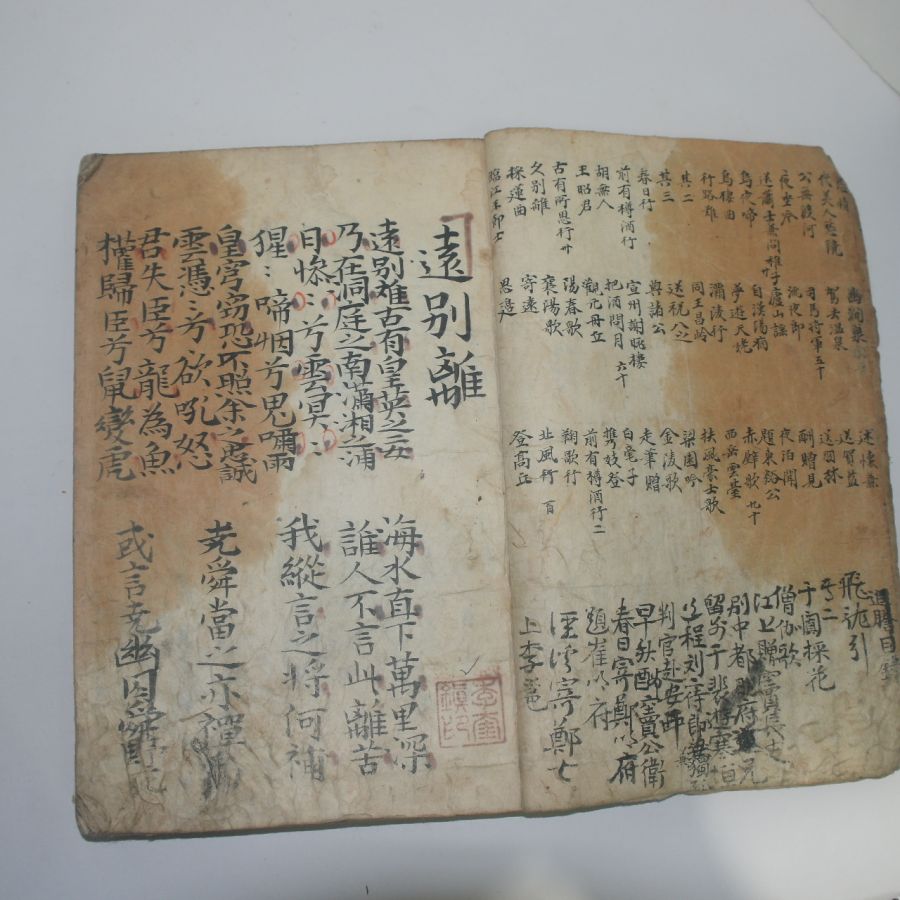 代美人愁鏡
公無渡河
夜坐吟
烏夜啼
烏棲曲
行路難
其二
其三
春日行
前有樽酒行
胡無人
王昭君
古有所思行 卅
久別離
採蓮曲
臨江王節士
幽澗泉
駕去溫泉
司馬將軍 五十
流夜郎
廬山謠
自漢陽病
夢遊天姥
灞陵行
同王昌齡
送祝八之
與諸公
宣州謝眺樓
把酒問月 六十
觀元丹丘
陽春歌
襄陽歌
寄遠
思邊
述懷
送賀監
酬贈見
夜泊聞
題東谿公
赤壁歌 九十
西岳雲臺
扶風豪士歌
梁園吟
金陵歌
走筆贈
白毫子
携妓登
前有樽酒行二
鞠歌行
北風行 百
登高丘
飛龍引
其二
于闐採花
僧伽歌
江上贈竇長史
早秋酬竇公衛
春日寄鄭明府
題崔明府
涇溪寄鄭七
上李邕
遠別離
遠別離古有皇英之二女
乃在洞庭之南瀟湘之浦
海水直下萬里深
誰人不言此離苦
日慘〻兮雲冥〻
猩〻啼烟兮鬼嘯雨
我縱言之將何補
皇穹竊恐不照余之忠誠
雲憑〻兮欲吼怒
堯舜當之亦禪禹
君失臣兮龍為魚
權歸臣兮鼠變虎
或言堯幽囚舜野死